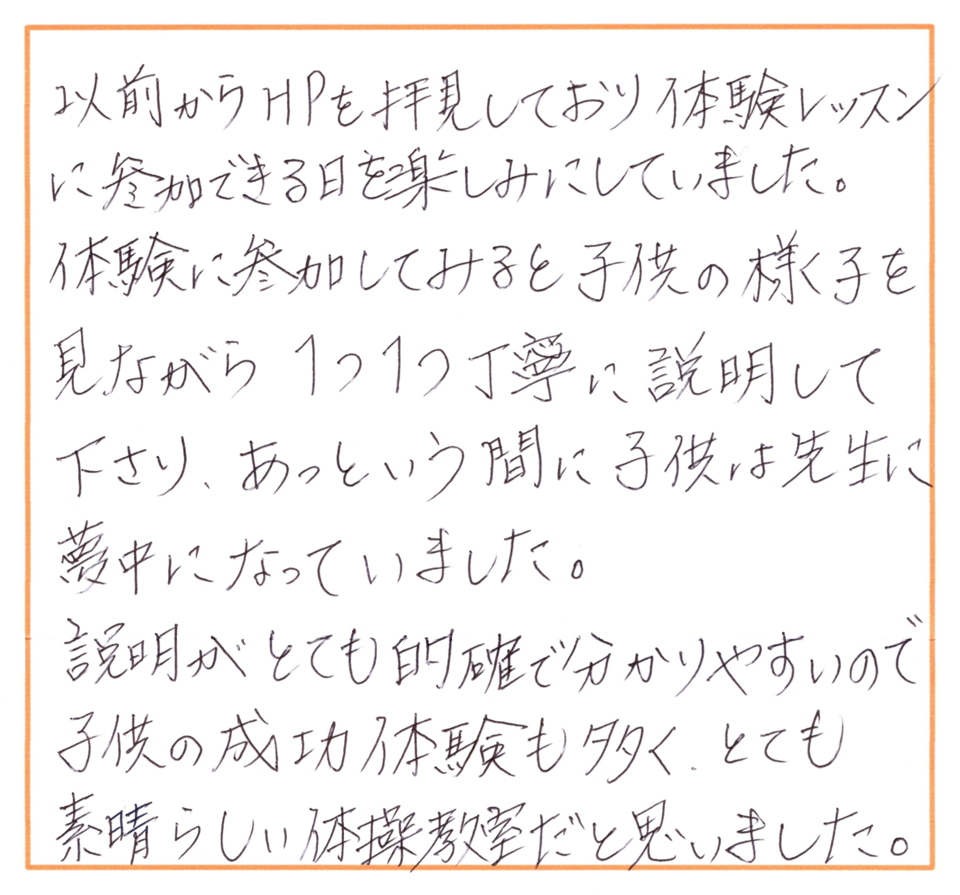 以前からHPを拝見しており体験レッスン
に参加できる日を楽しみにしていました。
体験に参加してみると子供の様子を
見ながら1つ1つ丁寧に説明して
下さり、あっという間に子供は先生に
夢中になっていました。
説明がとても的確で分かりやすいので
子供の成功体験も多く、とても
素晴らしい体操教室だと思いました。